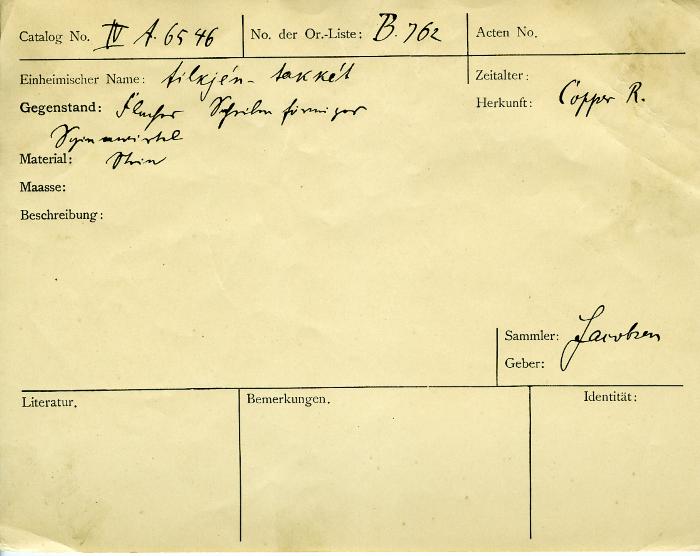 Catalog No. IV A. 6546 No. der Or.-Liste: B. 762 Acten No.
Einheimischer Name: tilkjén-takkét Zeitalter:
Gegenstand: Flacher Scheibenförmiger Herkunft: Copper R.
Spinnwirtel
Material: Stein
Maasse:
Beschreibung:
Sammler: Jacobsen
Geber:
Literatur. Bemerkungen. Identität: